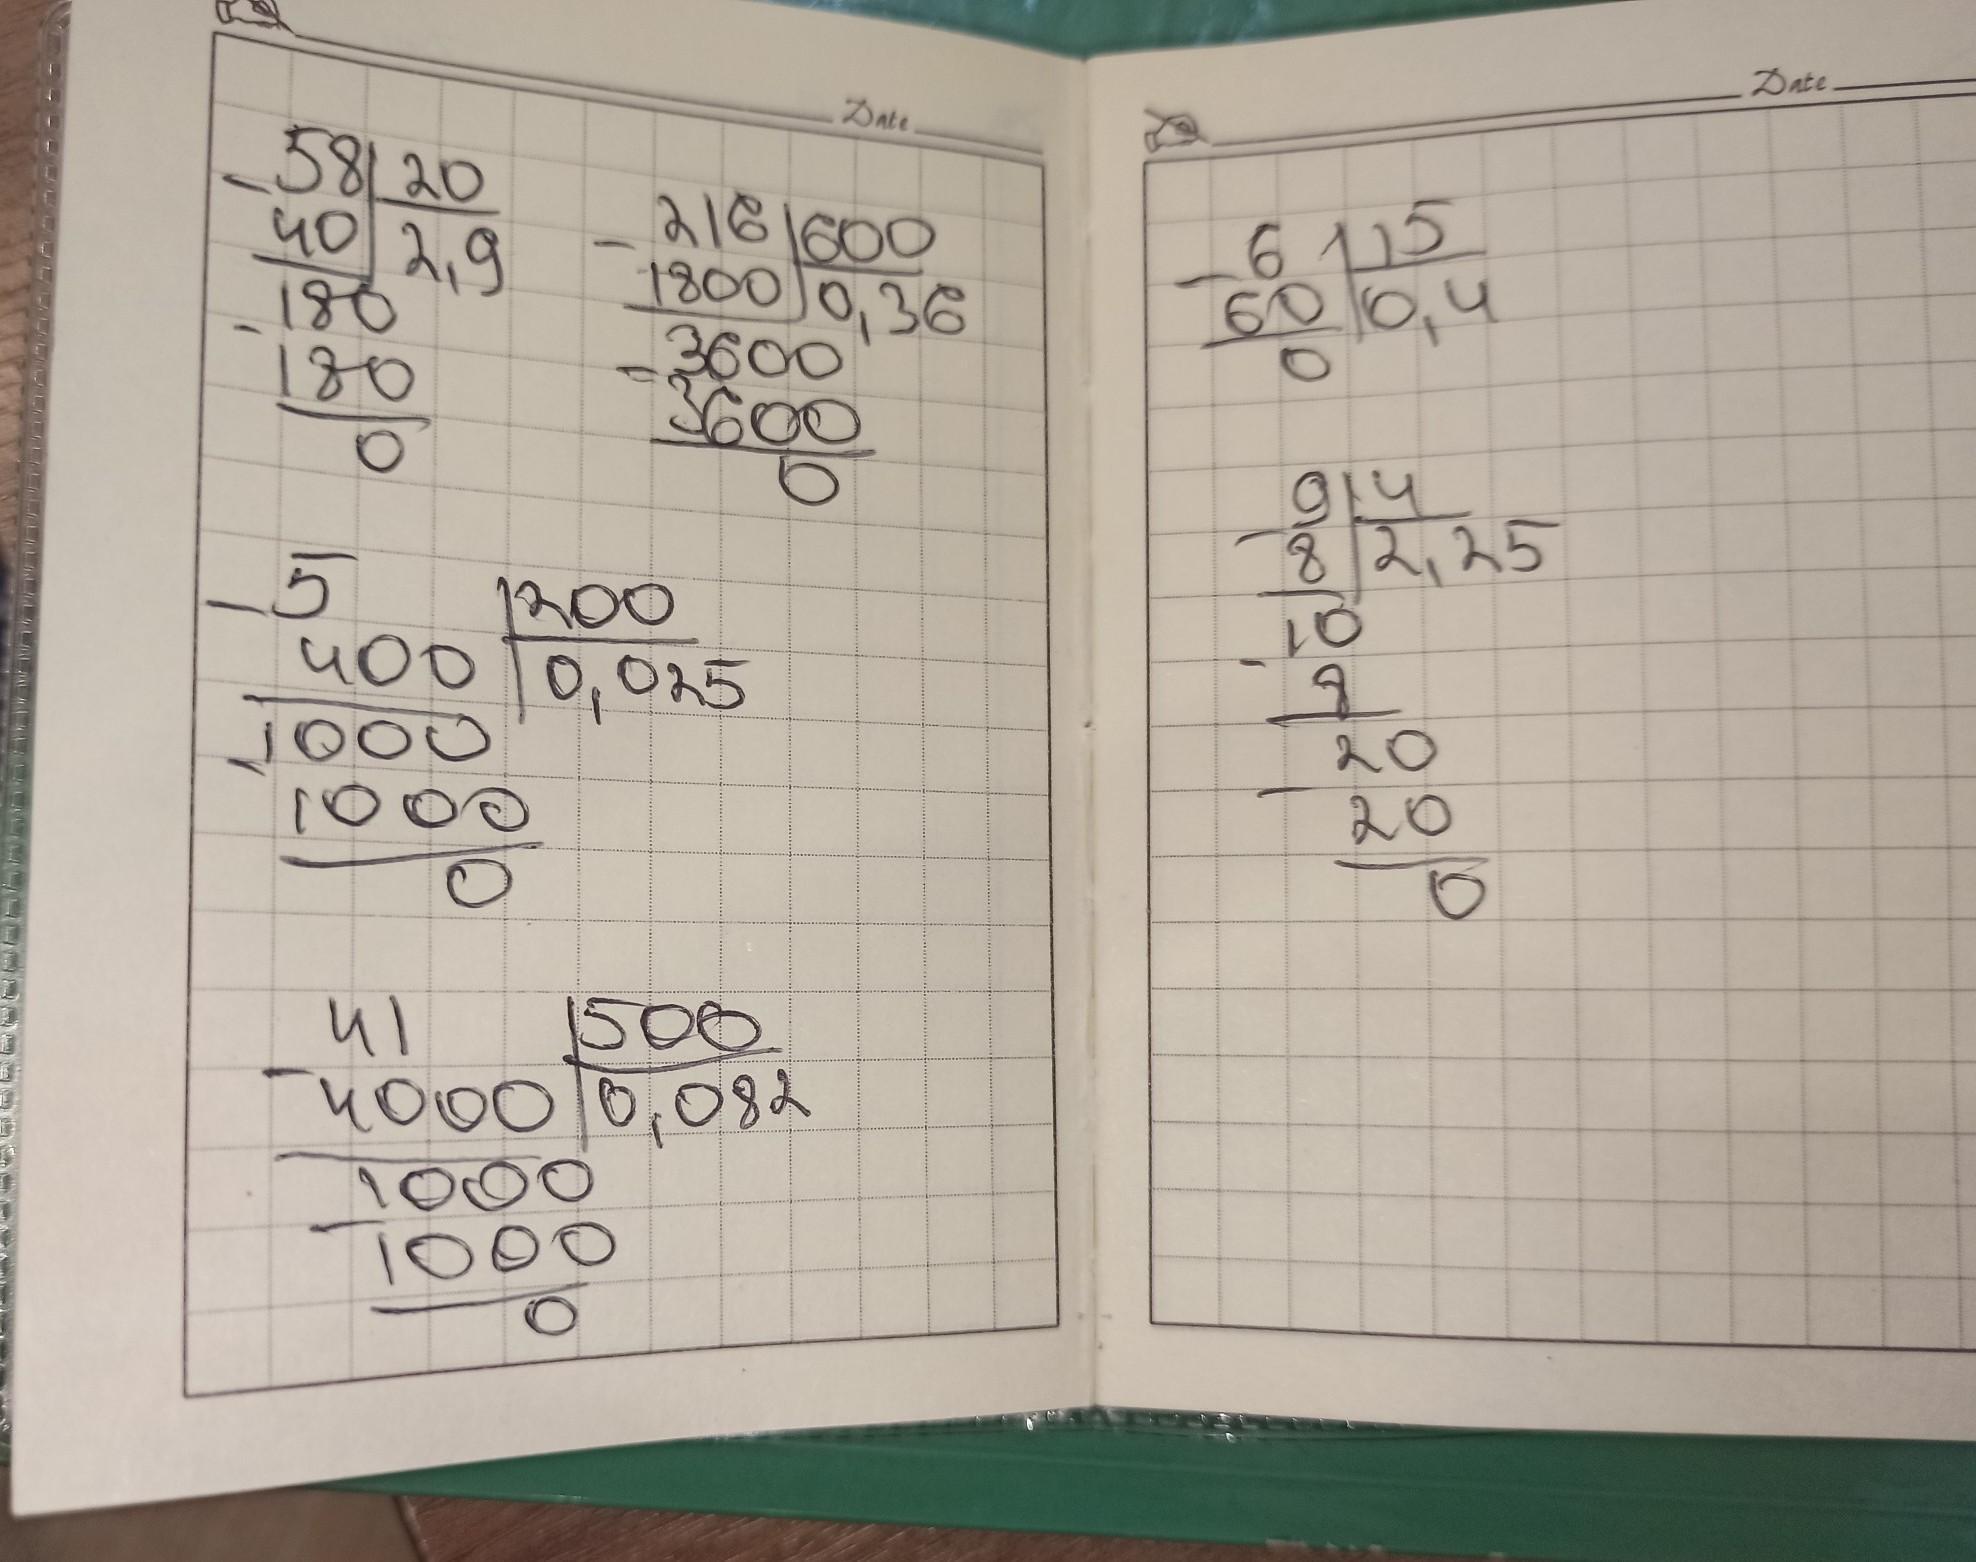 Date
-58|20
40|2,9
-180
180
0
-216|600
1800|0,36
-3600
3600
0
-5|200
400|0,025
-1000
1000
0
-41|500
4000|0,082
-1000
1000
0
Date
-6|15
60|0,4
0
-9|4
8|2,25
-10
8
-20
20
0